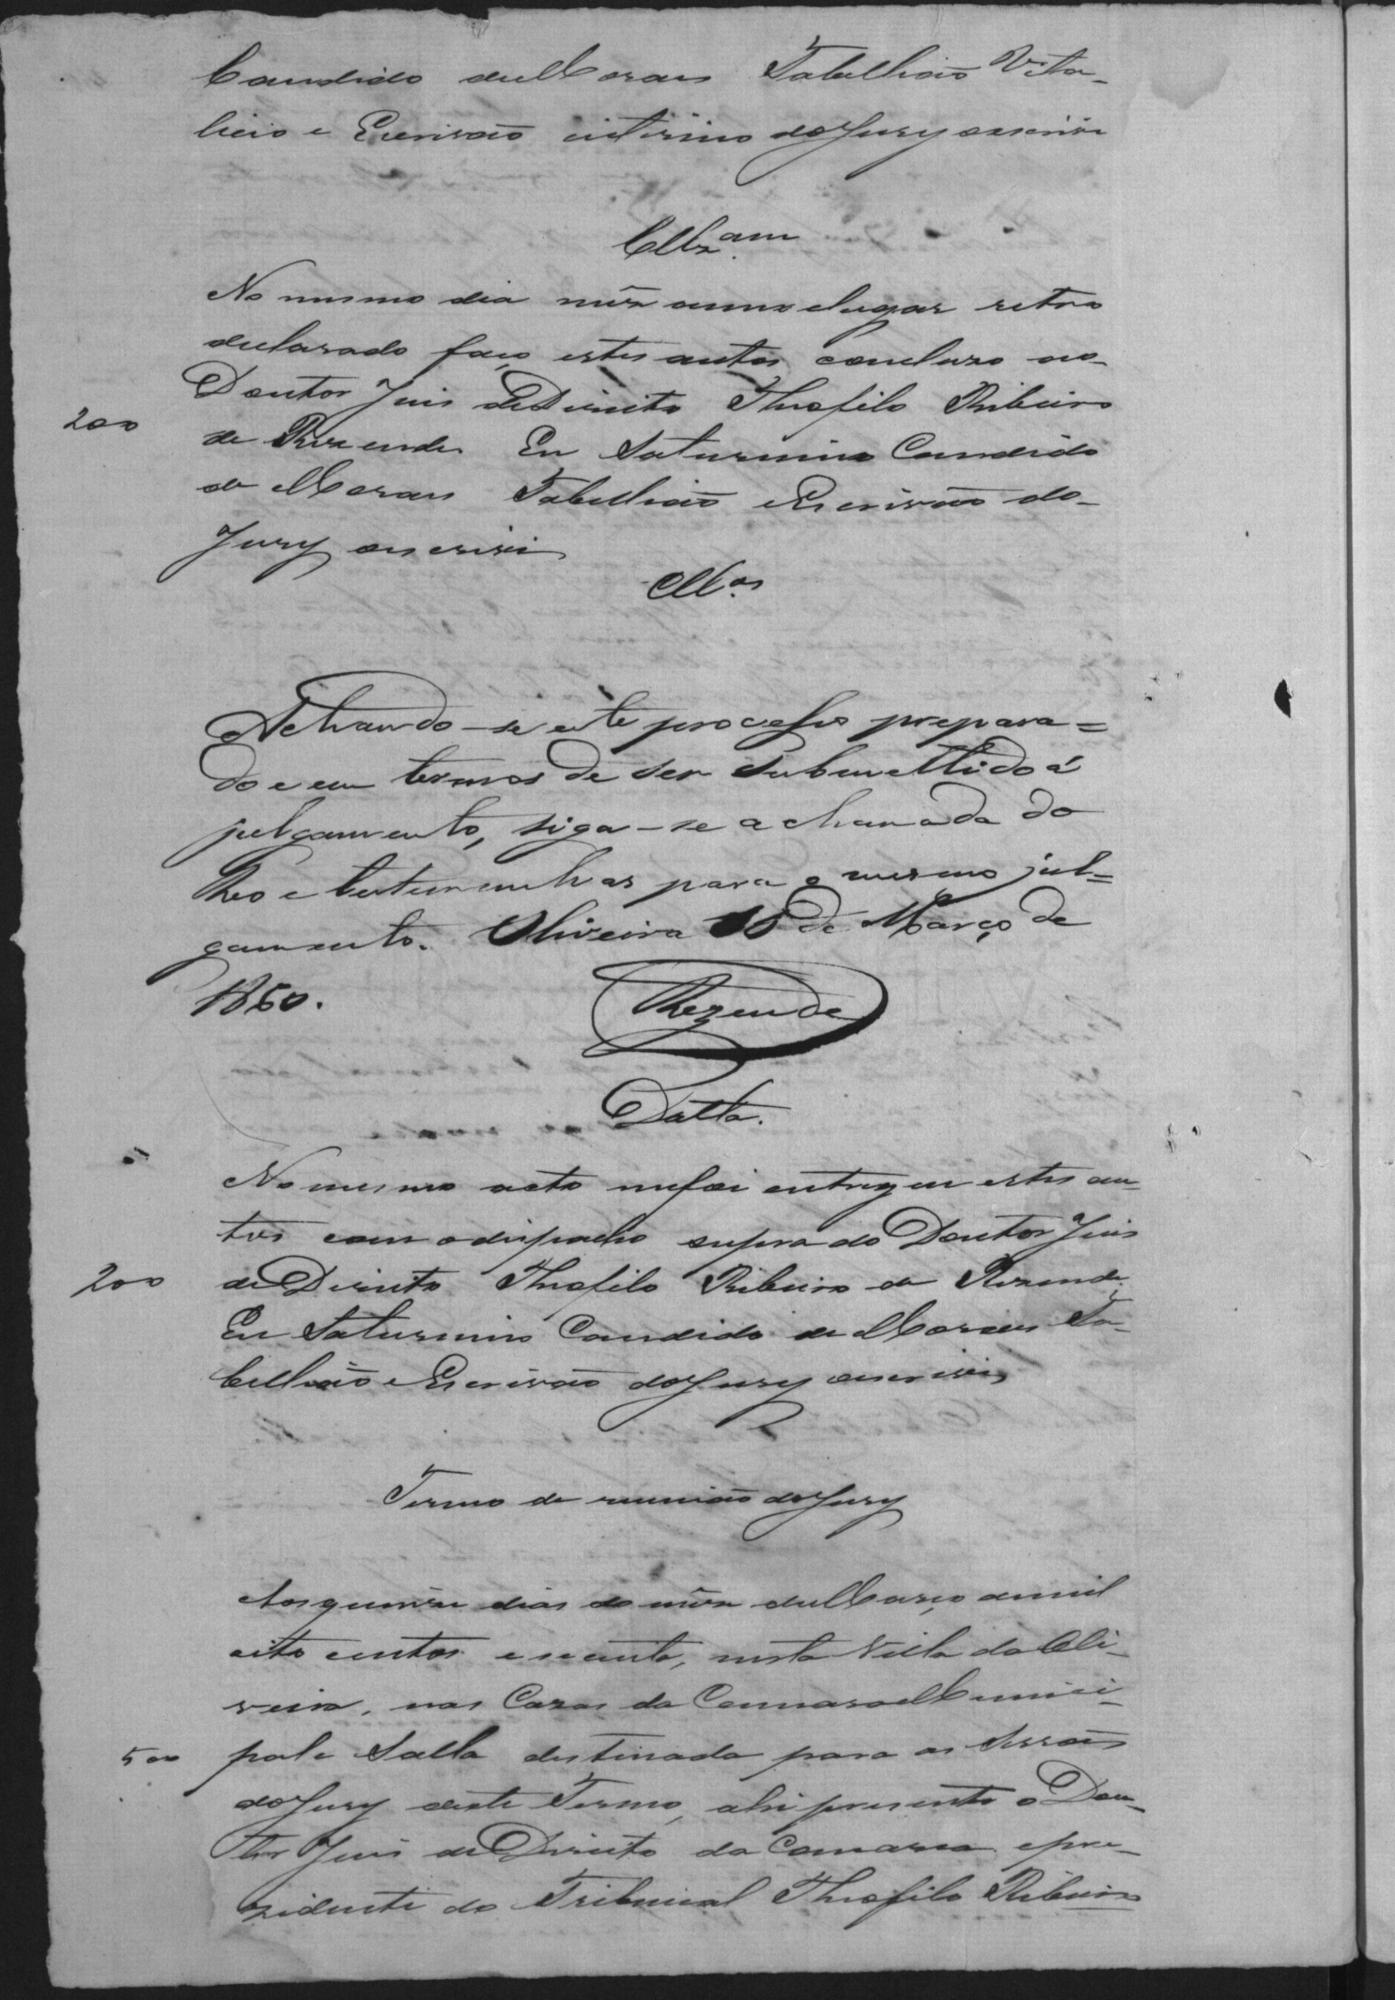 Candido de Moraes Tabellião Vita-
licio e Escrivão interino do Jury o escrivi
Clz.am
No mesmo dia mez anno e lugar retro
declarado faço estes autos concluzo ao
Doutor Juis de Direito Theofilo Ribeiro
200
de Rezende. Eu Saturnino Candido
de Moraes Tabellião e Escrivão do
Jury o escrivi
Clos
Achando-se este processo prepara=
do e em termos de ser submettido á
julgamento, siga-se a chamada do
Reo e testemunhas para o mesmo jul=
gamento. Oliveira 15 de Março de
1860.
Rezende
Datta.
No mesmo acto me foi entregue estes au-
tos com o dispacho supra do Doutor Juis
200
de Direito Theofilo Ribeiro de Rezende.
Eu Saturnino Candido de Moraes Ta-
bellião e Escrivão do Jury o escrivi
Termo de reunião do Jury
Aos quinze dias do mez de Março de mil
oito centos e secenta, nesta Villa da Oli-
veira, nas Cazas da Camara Munici-
500
pal e Salla destinada para as Sessões
do Jury deste Termo, ahi presente o Dou-
tor Juis de Direito da Comarca e pre-
zidente do Tribunal Theofilo Ribeiro